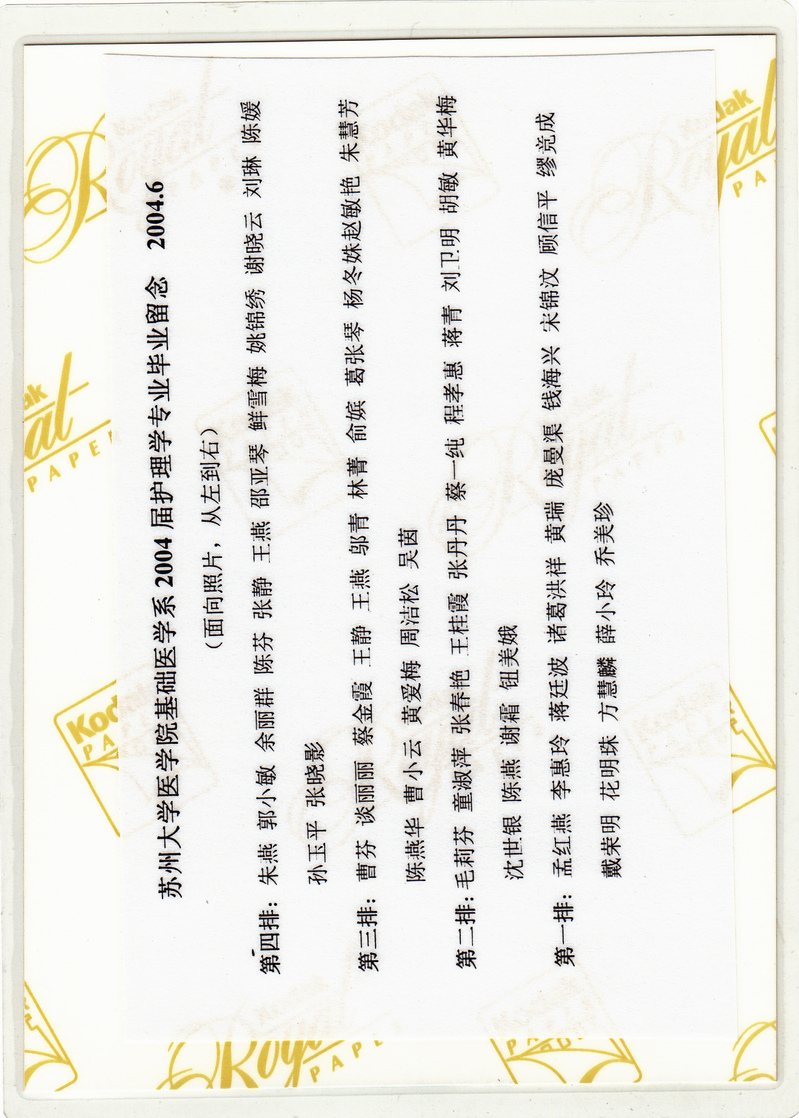 苏州大学医学院基础医学系 2004 届护理学专业毕业留念 2004.6
（面向照片，从左到右）
第四排：朱燕 郭小敏 余丽群 陈芬 张静 王燕 邵亚琴 鲜雪梅 姚锦绣 谢晓云 刘琳 陈媛
孙玉平 张晓影
第三排：曹芬 谈丽丽 蔡金霞 王静 王燕 邬青 林菁 俞嫔 葛张琴 杨冬姝赵敏艳 朱慧芳
陈燕华 曹小云 黄爱梅 周洁松 吴茵
第二排：毛莉芬 童淑萍 张春艳 王桂霞 张丹丹 蔡一纯 程孝惠 蒋青 刘卫明 胡敏 黄华梅
沈世银 陈燕 谢霜 钮美娥
第一排：孟红燕 李惠玲 蒋廷波 诸葛洪祥 黄瑞 庞曼渠 钱海兴 宋锦汶 顾信平 缪竞成
戴荣明 花明珠 方慧麟 薛小玲 乔美珍
Kodak
Royal
PAPER